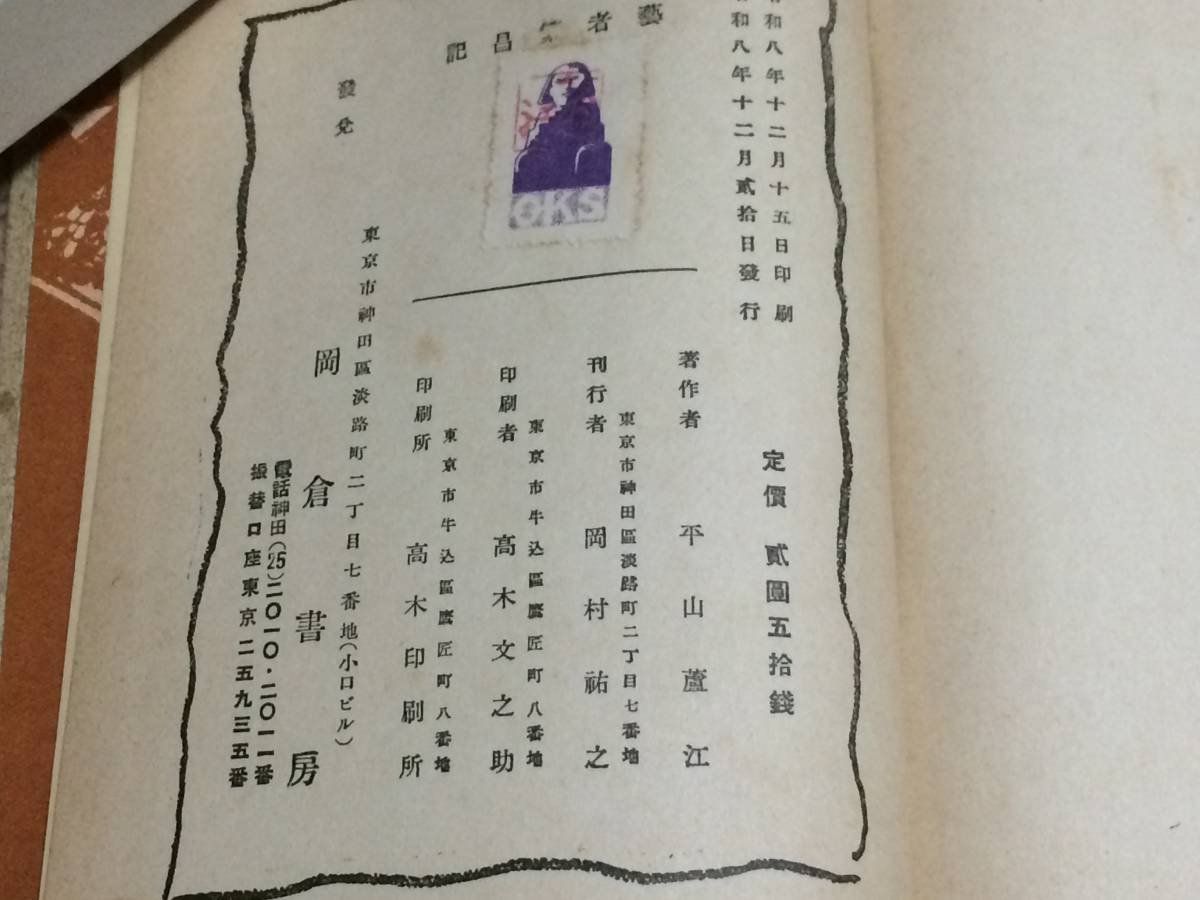 和八年十二月十五日印刷
和八年十二月貳拾日發行
定價 貳圓五拾錢
藝者 昌記
OKS
著作者 平山蘆江
東京市神田區淡路町二丁目七番地
刊行者 岡村祐之
東京市牛込區鷹匠町八番地
印刷者 高木文之助
東京市牛込區鷹匠町八番地
印刷所 高木印刷所
東京市神田區淡路町二丁目七番地(小口ビル)
發兌 岡倉書房
電話神田(25)二〇一〇・二〇一一番
振替口座東京二五九三五番